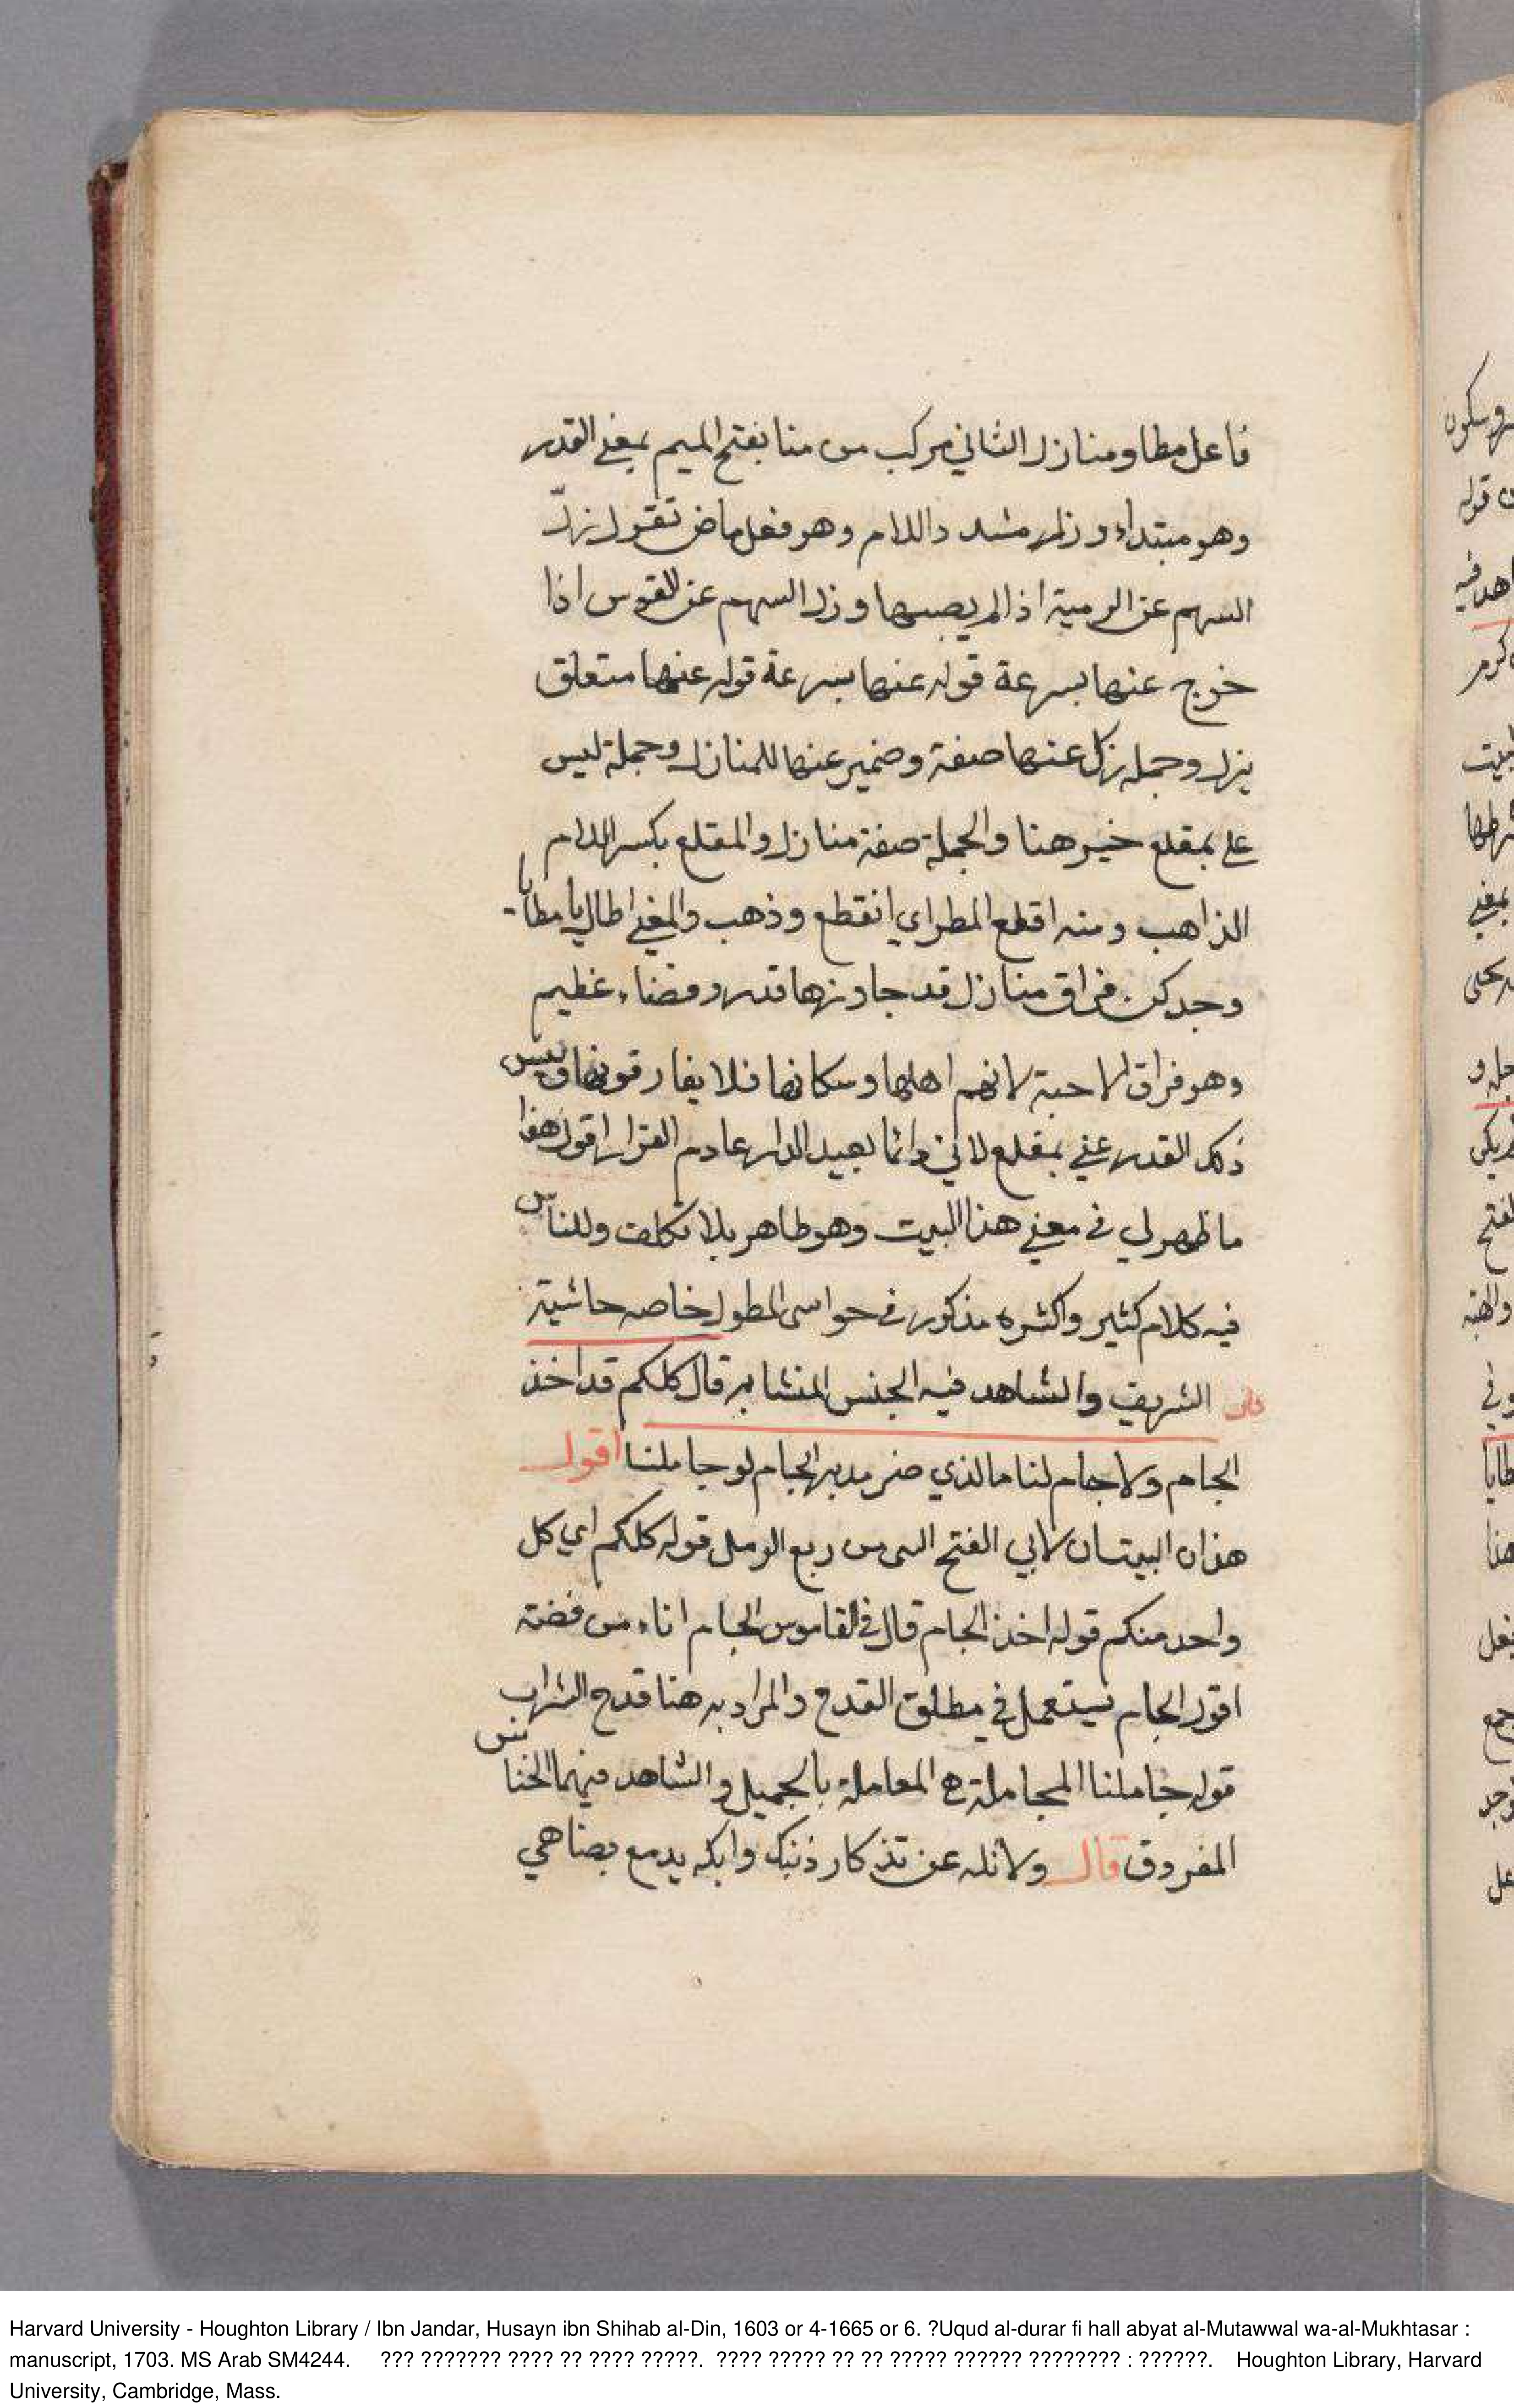 فاعل مطا ومنازل الثاني مركب من منا بفتح الميم بمعنى القدر
وهو مبتداء وزلم مشد داللام وهو فعل ماض تقول زلّ
السهم عن الرمية اذا لم يصبها وزل السهم عن القوس اذا
خرج عنها بسرعة قوله عنها بسرعة قوله عنها متعلق
بزل وجملة زل عنها صفة وضمير عنها للمنازل وجملة ليس
على بمقلع خبر هنا والجملة صفة منازل والمقلع بكسر اللام
الذاهب ومنه اقلع المطر اي انقطع وذهب والمعنى اطال يا مطايا
وجدكن فراق منازل قد جاوزها قدر وقضاء عظيم
وهو فراق الاحبة لانهم اهلها وسكانها فلا يفارقونها وليس
ذلك القدر عني بمقلع لاني دائما بعيد الدار عادم القرار اقول هذا
ما ظهر لي في معنى هذا البيت وهو ظاهر بلا تكلف وللناس
فيه كلام كثير واكثره مذكور في حواسى المطول خاصه حاشية
الشريف والشاهد فيه الجنس المتشابه قال كلكم قد اخذ
الجام ولا جام لنا ما الذي ضر مدير الجام لو جاملنا اقول
هذان البيتان لابي الفتح البسى من ربع الرمل قوله كلكم اي كل
واحد منكم قوله اخذ الجام قال في القاموس الجام اناء من فضة
اقول الجام يستعمل في مطلق القدح والمراد به هنا قدح الشراب
قوله جاملنا المجاملة هي المعاملة بالجميل والشاهد فيهما الجناس
المفروق قال ولا تله عن تذكار ذنبك وابكه بدمع يضاهي
Harvard University - Houghton Library / Ibn Jandar, Husayn ibn Shihab al-Din, 1603 or 4-1665 or 6. ?Uqud al-durar fi hall abyat al-Mutawwal wa-al-Mukhtasar :
manuscript, 1703. MS Arab SM4244. ??? ??????? ???? ?? ???? ?????. ???? ????? ?? ?? ????? ?????? ???????? : ??????. Houghton Library, Harvard
University, Cambridge, Mass.